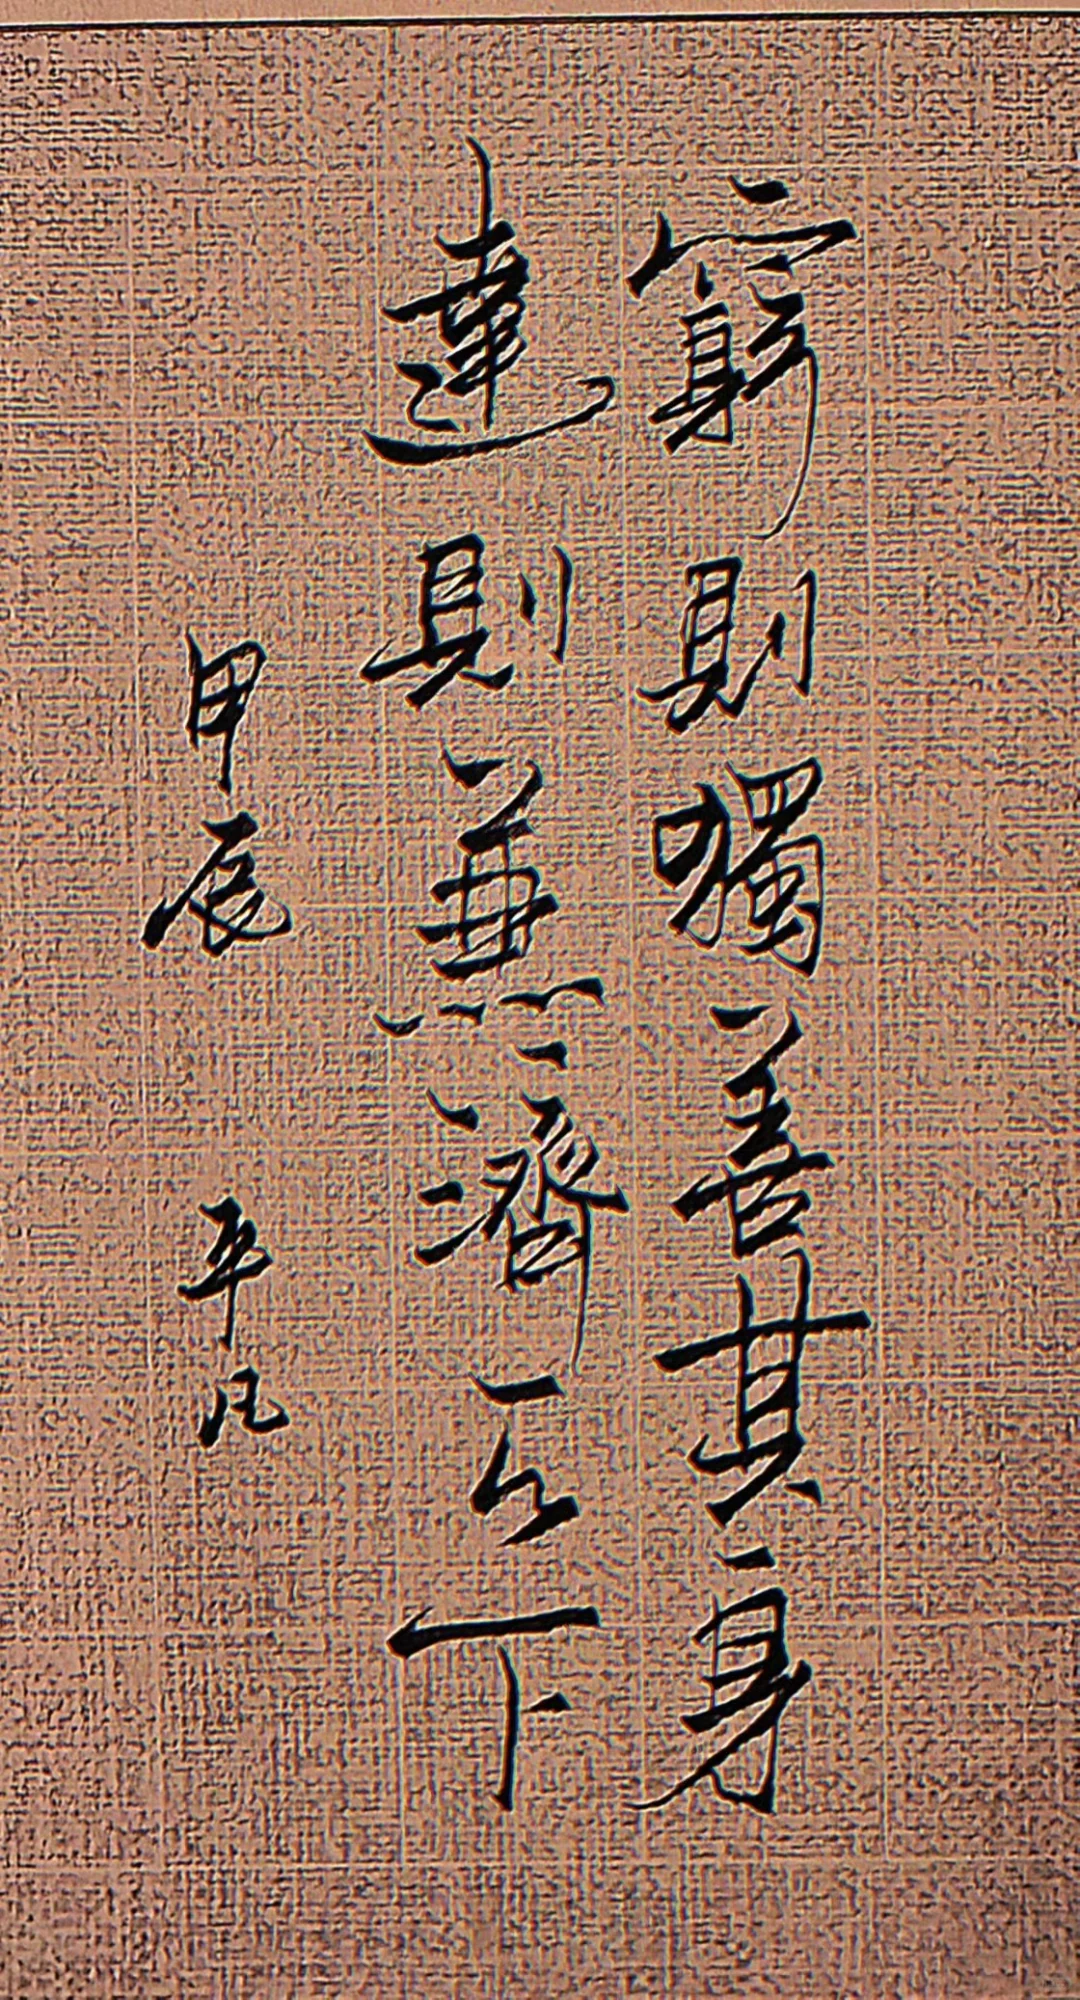 窮則獨善其身
達則兼濟天下
甲辰 平凡